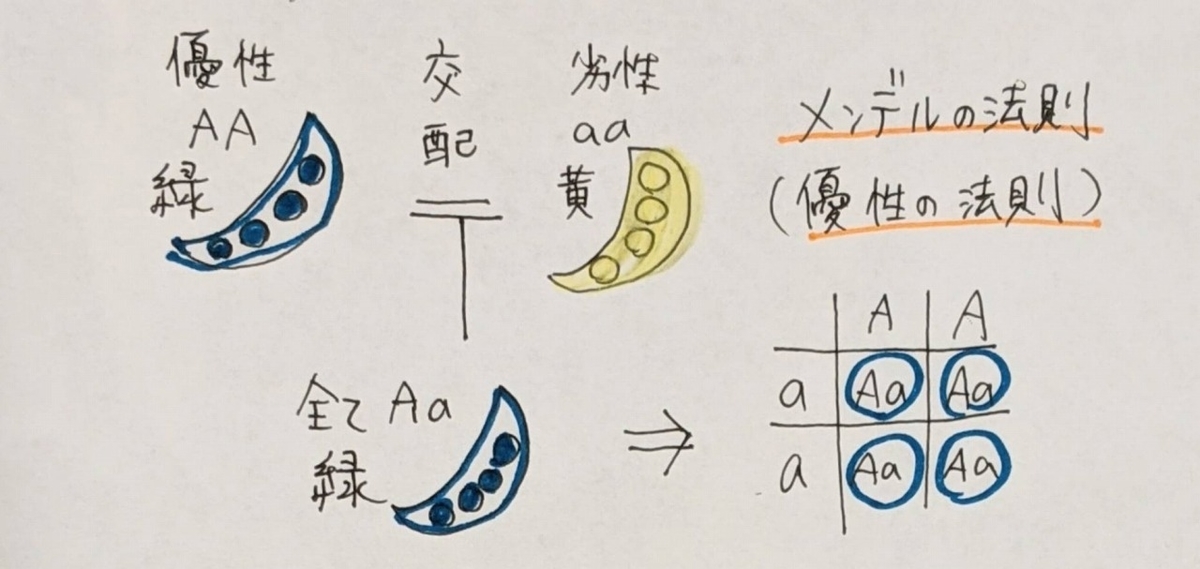 優性
AA
緑
交
配
劣性
aa
黄
メンデルの法則
(優性の法則)
全て Aa
緑
⇒
A A
a Aa Aa
a Aa Aa